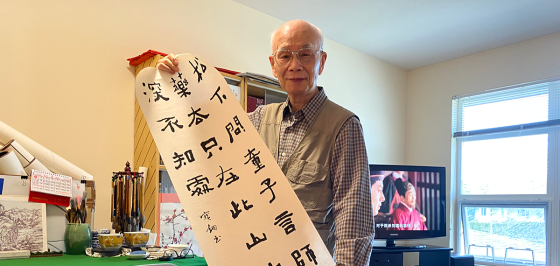 松下問童子言師
藥去只在此山中
深不知處